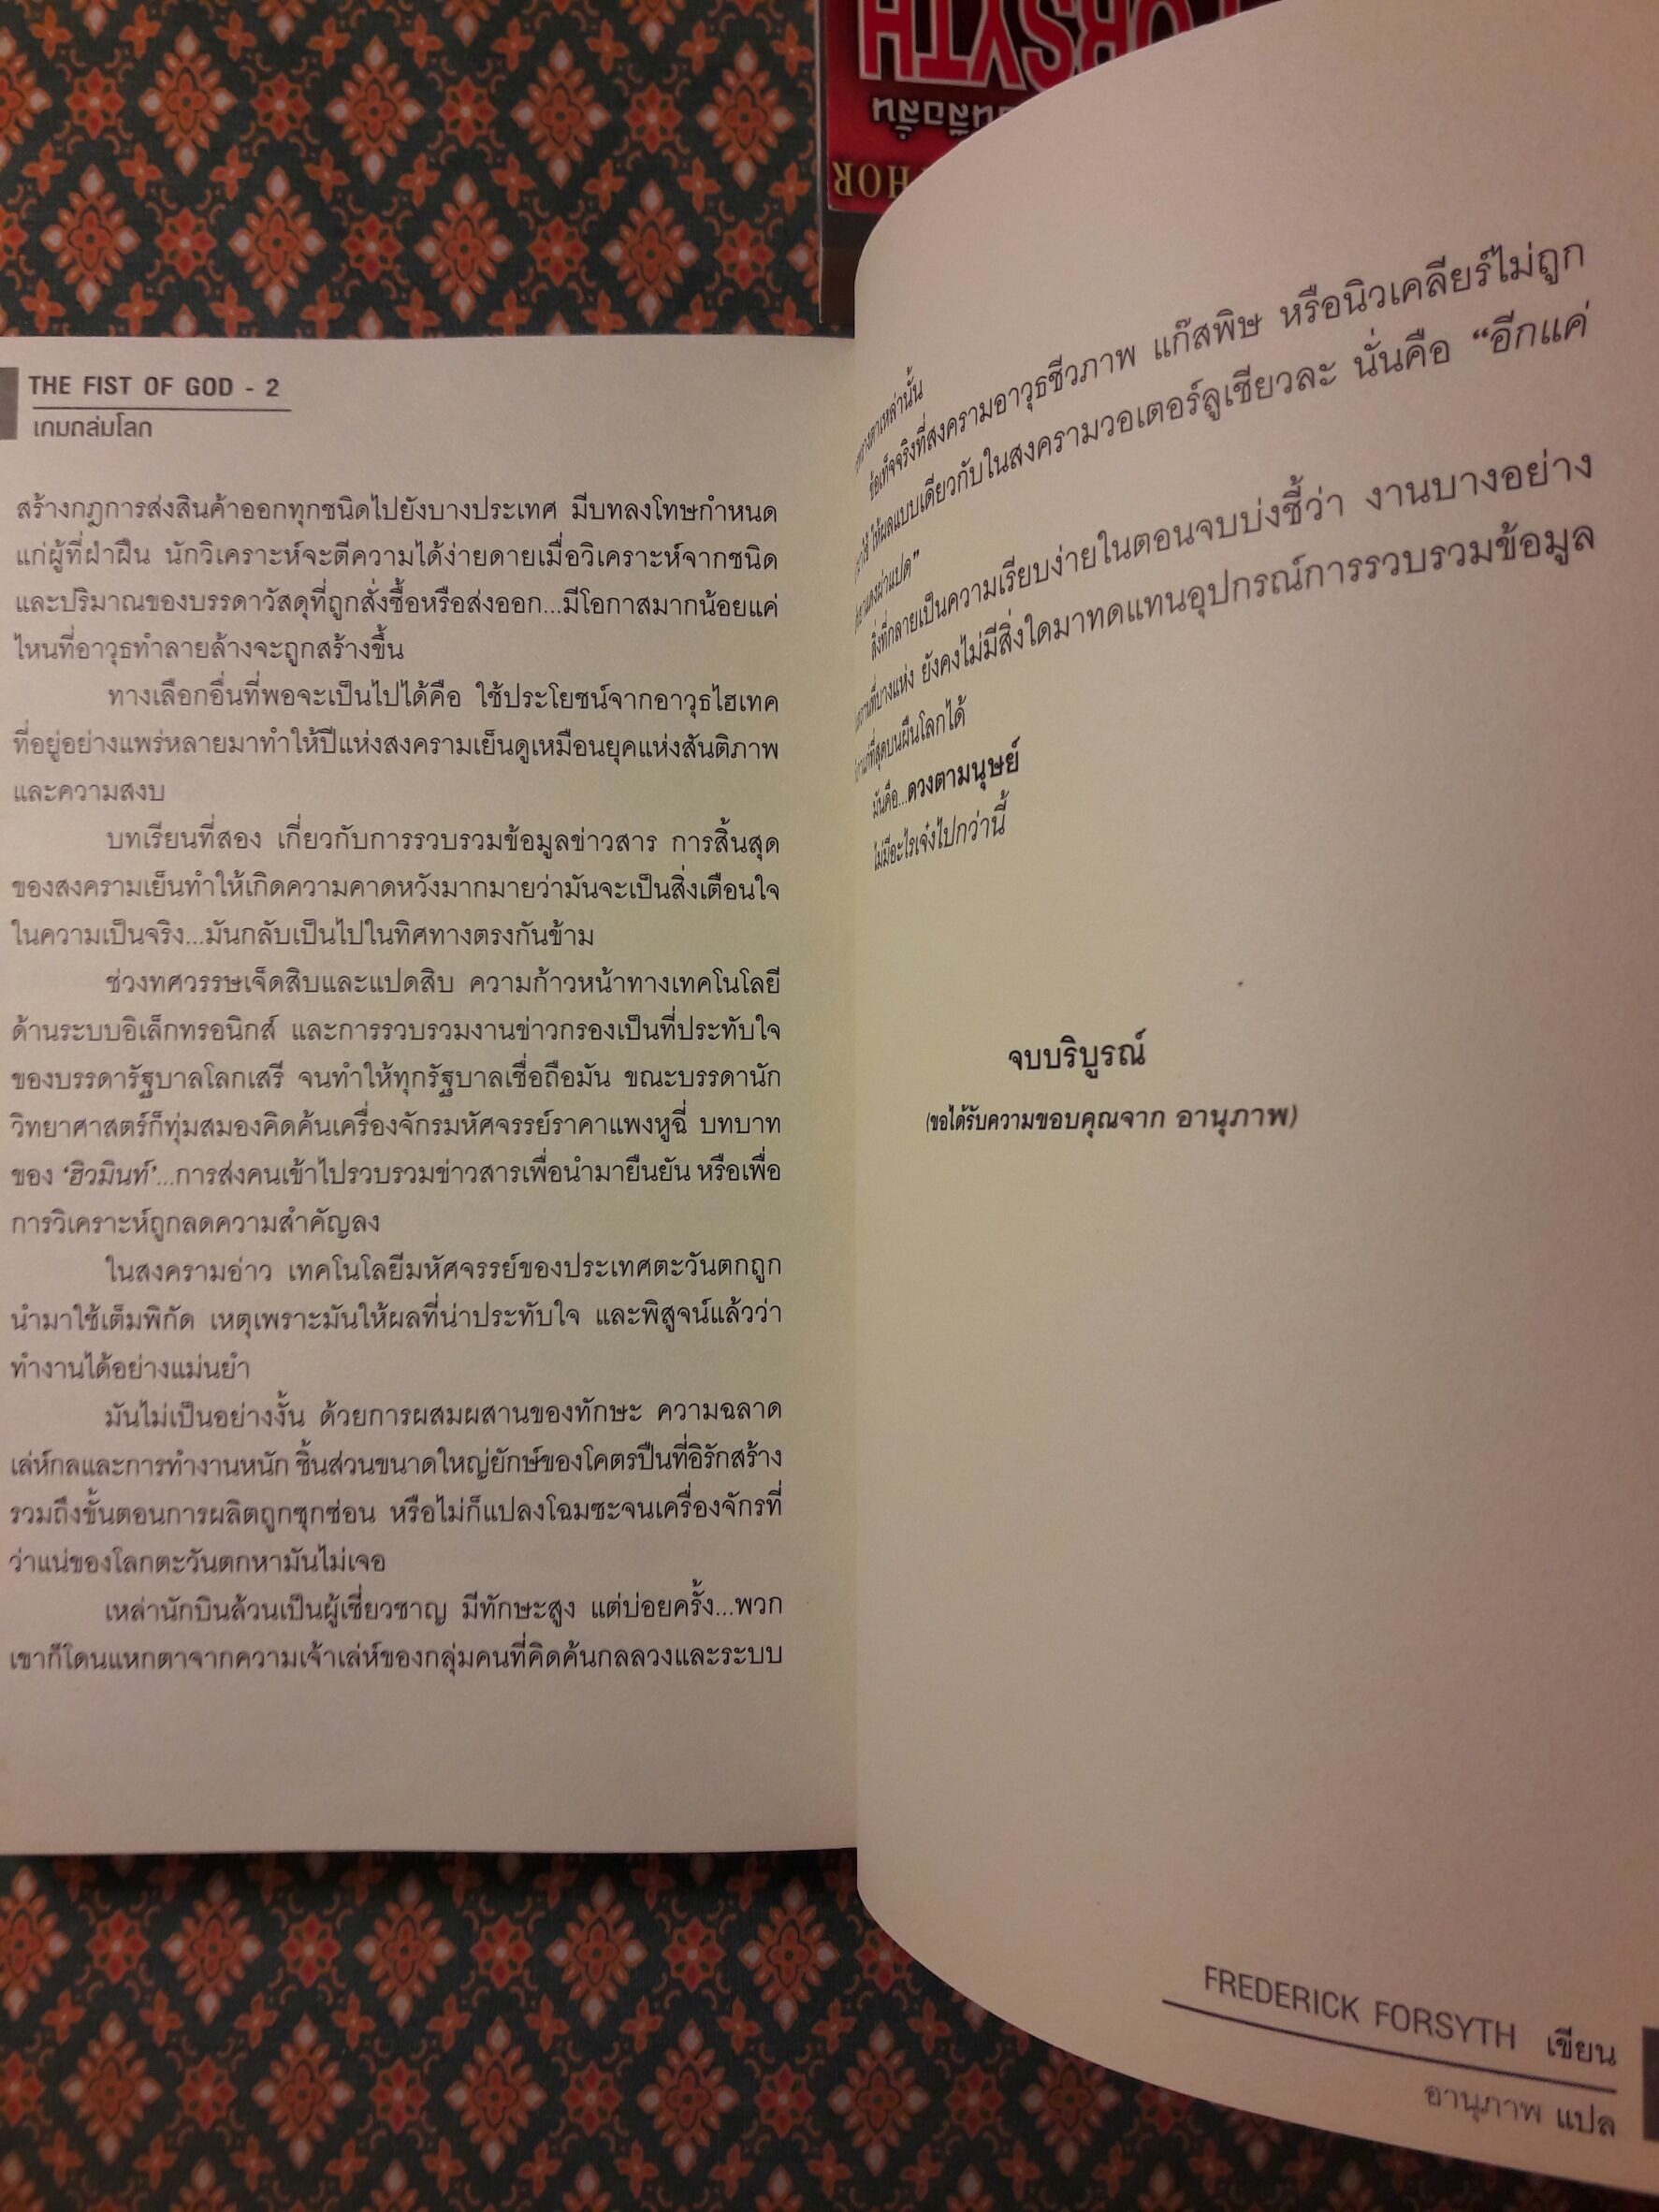 FORSYTH
THE FIST OF GOD - 2
เกมถล่มโลก
สร้างกฎการส่งสินค้าออกทุกชนิดไปยังบางประเทศ มีบทลงโทษกำหนด
แก่ผู้ที่ฝ่าฝืน นักวิเคราะห์จะตีความได้ง่ายดายเมื่อวิเคราะห์จากชนิด
และปริมาณของบรรดาวัสดุที่ถูกสั่งซื้อหรือส่งออก...มีโอกาสมากน้อยแค่
ไหนที่อาวุธทำลายล้างจะถูกสร้างขึ้น
ทางเลือกอื่นที่พอจะเป็นไปได้คือ ใช้ประโยชน์จากอาวุธไฮเทค
ที่อยู่อย่างแพร่หลายมาทำให้ปีแห่งสงครามเย็นดูเหมือนยุคแห่งสันติภาพ
และความสงบ
บทเรียนที่สอง เกี่ยวกับการรวบรวมข้อมูลข่าวสาร การสิ้นสุด
ของสงครามเย็นทำให้เกิดความคาดหวังมากมายว่ามันจะเป็นสิ่งเตือนใจ
ในความเป็นจริง...มันกลับเป็นไปในทิศทางตรงกันข้าม
ช่วงทศวรรษเจ็ดสิบและแปดสิบ ความก้าวหน้าทางเทคโนโลยี
ด้านระบบอิเล็กทรอนิกส์ และการรวบรวมงานข่าวกรองเป็นที่ประทับใจ
ของบรรดารัฐบาลโลกเสรี จนทำให้ทุกรัฐบาลเชื่อถือมัน ขณะบรรดานัก
วิทยาศาสตร์ก็ทุ่มสมองคิดค้นเครื่องจักรมหัศจรรย์ราคาแพงหูฉี่ บทบาท
ของ ‘ฮิวมินท์’...การส่งคนเข้าไปรวบรวมข่าวสารเพื่อนำมายืนยัน หรือเพื่อ
การวิเคราะห์ถูกลดความสำคัญลง
ในสงครามอ่าว เทคโนโลยีมหัศจรรย์ของประเทศตะวันตกถูก
นำมาใช้เต็มพิกัด เหตุเพราะมันให้ผลที่น่าประทับใจ และพิสูจน์แล้วว่า
ทำงานได้อย่างแม่นยำ
มันไม่เป็นอย่างงั้น ด้วยการผสมผสานของทักษะ ความฉลาด
เล่ห์กลและการทำงานหนัก ชิ้นส่วนขนาดใหญ่ยักษ์ของโคตรปืนที่อิรักสร้าง
รวมถึงขั้นตอนการผลิตถูกซุกซ่อน หรือไม่ก็แปลงโฉมซะจนเครื่องจักรที่
ว่าแน่ของโลกตะวันตกหามันไม่เจอ
เหล่านักบินล้วนเป็นผู้เชี่ยวชาญ มีทักษะสูง แต่บ่อยครั้ง...พวก
เขาก็โดนแหกตาจากความเจ้าเล่ห์ของกลุ่มคนที่คิดค้นกลลวงและระบบ
ตาเหล่านั้น
ข้อเท็จจริงที่สงครามอาวุธชีวภาพ แก๊สพิษ หรือนิวเคลียร์ไม่ถูก
ให้ผลแบบเดียวกับในสงครามวอเตอร์ลูเชียวละ นั่นคือ “อีกแค่
สิ่งที่กลายเป็นความเรียบง่ายในตอนจบบ่งชี้ว่า งานบางอย่าง
ที่บางแห่ง ยังคงไม่มีสิ่งใดมาทดแทนอุปกรณ์การรวบรวมข้อมูล
ที่สุดบนผืนโลกได้
มันคือ...ดวงตามนุษย์
ไม่มีอะไรเจ๋งไปกว่านี้
จบบริบูรณ์
(ขอได้รับความขอบคุณจาก อานุภาพ)
FREDERICK FORSYTH เขียน
อานุภาพ แปล